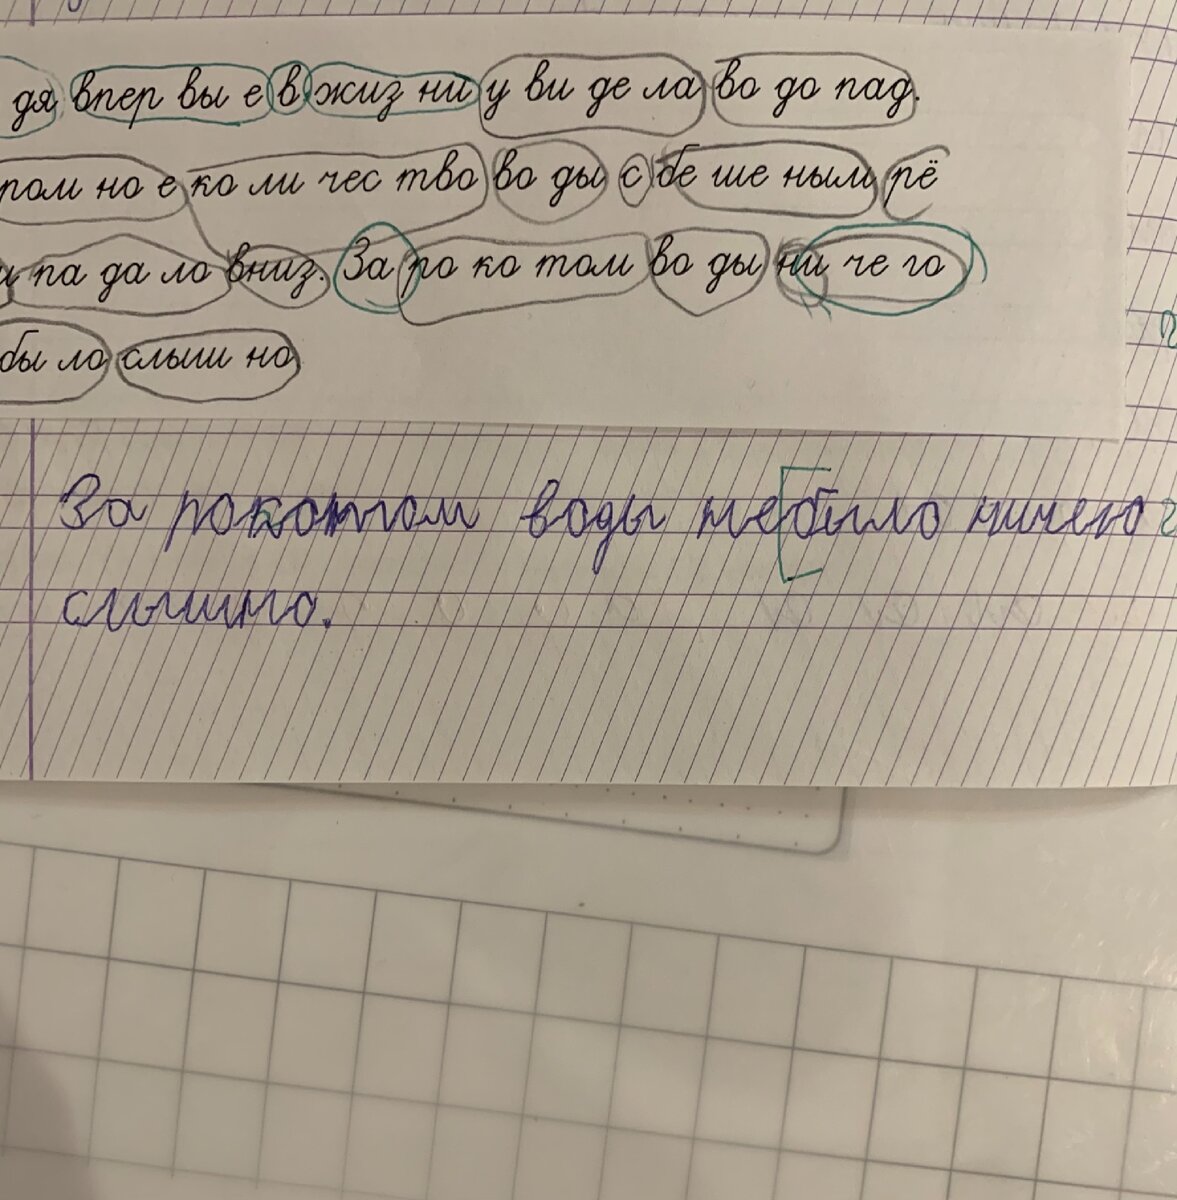 дя впер вы е в жиз ни у ви де ла во до пад.
ром но е ко ли чес тво во ды с бе ше ным рё
и па да ло вниз. За ро ко том во ды ни че го
бы ло слыш но
За рокотом воды небыло ничего
слышно.